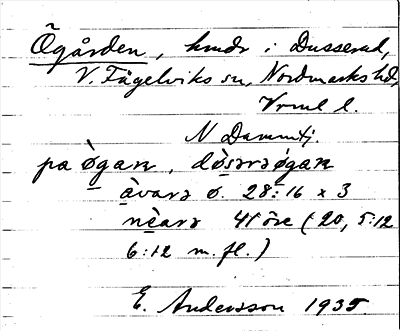 Ögården, hmdr i Dusserud,
V. Fågelviks sn, Nordmarks hd,
Vrml l.
N Dammtj.
pa ògan, dòsərəògan
àvarə o. 28:16 x 3
nèarə 41 öre (20, 5:12
6:12 m. fl.)
E. Andersson 1935